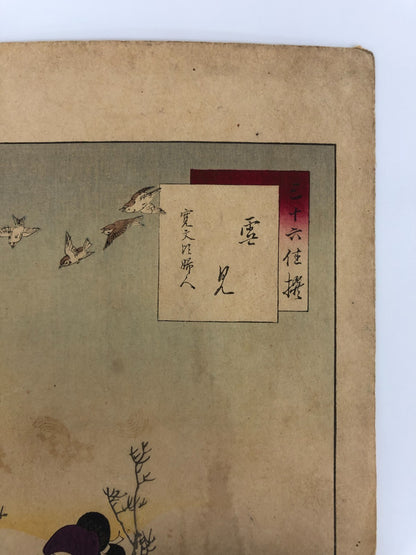 三十六佳撰
雪見
寛文頃婦人